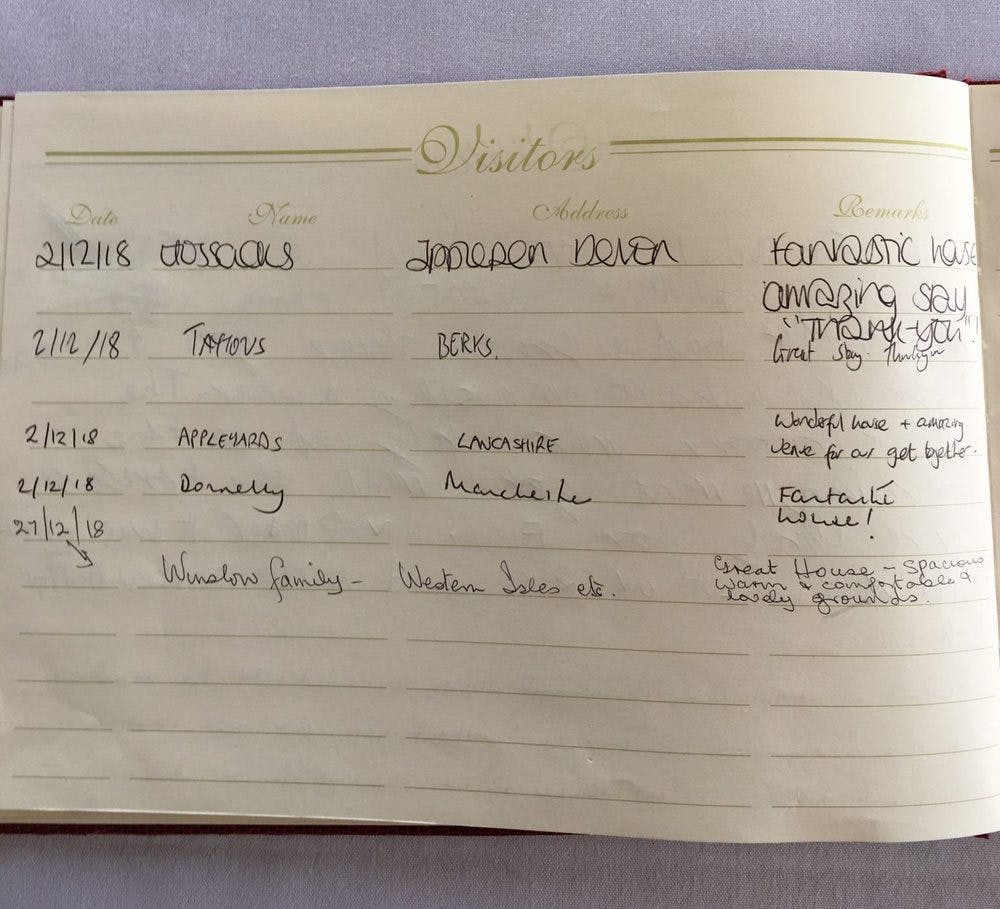 Visitors
Date Name Address Remarks
2/12/18 Hossacks Ipplepen Devon Fantastic house
amazing stay
"Thank-you"!
2/12/18 BERKS. Great stay.
2/12/18 APPLEYARDS LANCASHIRE Wonderful house + amazing
venue for our get together.
2/12/18 Donnelly Manchester Fantastic
house!
27/12/18
Winslow family - Western Isles etc. Great House - Spacious
warm & comfortable &
lovely grounds.